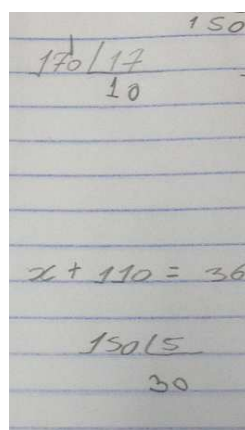 150
170 17
10
x + 110 = 36
150 5
30